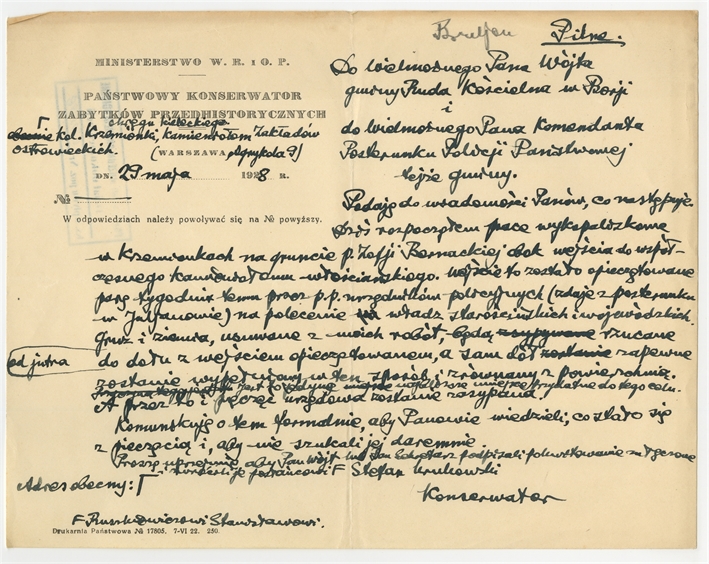 Bruljon
Pilne.
MINISTERSTWO W. R. i O. P.
PAŃSTWOWY KONSERWATOR
ZABYTKÓW PRZEDHISTORYCZNYCH
okręgu kieleckiego
obecnie kol. Krzemionki, kamieniołom Zakładów
ostrowieckich.
(WARSZAWA, Agrykola 9)
DN. 29 maja 1928 R.
№
W odpowiedziach należy powoływać się na № powyższy.
Do wielmożnego Pana Wójta
gminy Ruda Kościelna w Borji
i
do wielmożnego Pana Komendanta
Posterunku Policji Państwowej
tejże gminy.
Podaję do wiadomości Panów, co następuje.
Dziś rozpocząłem prace wykopaliskowe
w Krzemionkach na gruncie p. Zofji Bernackiej obok wejścia do współ-
czesnego kamieniołomu włościańskiego. Wejście to zostało opieczętowane
parę tygodni temu przez p.p. urzędników policyjnych (zdaje z posterunku
w Juljanowie) na polecenie władz starościńskich i wojewódzkich.
Gruz i ziemia, usuwane z moich robót, będą rzucane
od jutra
do dołu z wejściem opieczętowanem, a sam dół zapewne
zostanie wypełniony w ten sposób i zrównany z powierzchnią.
jest jedyne najbliższe miejsce przydatne do tego celu.
A przez to i pieczęć urzędowa zostanie zasypaną.
Komunikuję o tem formalnie, aby Panowie wiedzieli, co stało się
z pieczęcią i, aby nie szukali jej daremnie.
Proszę uprzejmie, aby Pan Wójt lub Pan Sekretarz podpisali pokwitowanie załączone
i wręczyli je posłańcowi Γ Stefan Krukowski
Adres obecny: Γ
Konserwator
Γ Ruszkowiczowi Stanisławowi.
Drukarnia Państwowa № 17805. 7-VI 22. 250.